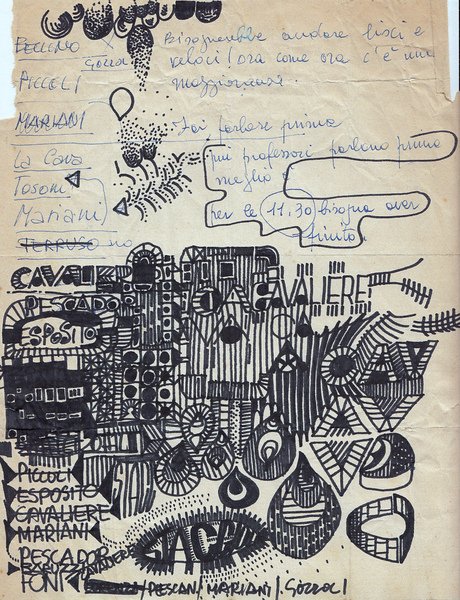 Bellino x
Gozzoli
Bisognerebbe andare lisci e
veloci! ora come ora c'è una
maggioranza.
PICCOLI
MARIANI
Fai parlare prima
La Cava
più professori parlano prima
meglio è
Tosoni
Mariani
per le 11.30 bisogna aver
finito.
TERRUSO no
CAVALIERE
CAVALIERE!
PESCADOR
ESPOSITO
CAV
PICCOLI
ESPOSITO
CAVALIERE
MARIANI
PESCADOR
FONI
/PESCAN/MARIANI/.GOZZOLI